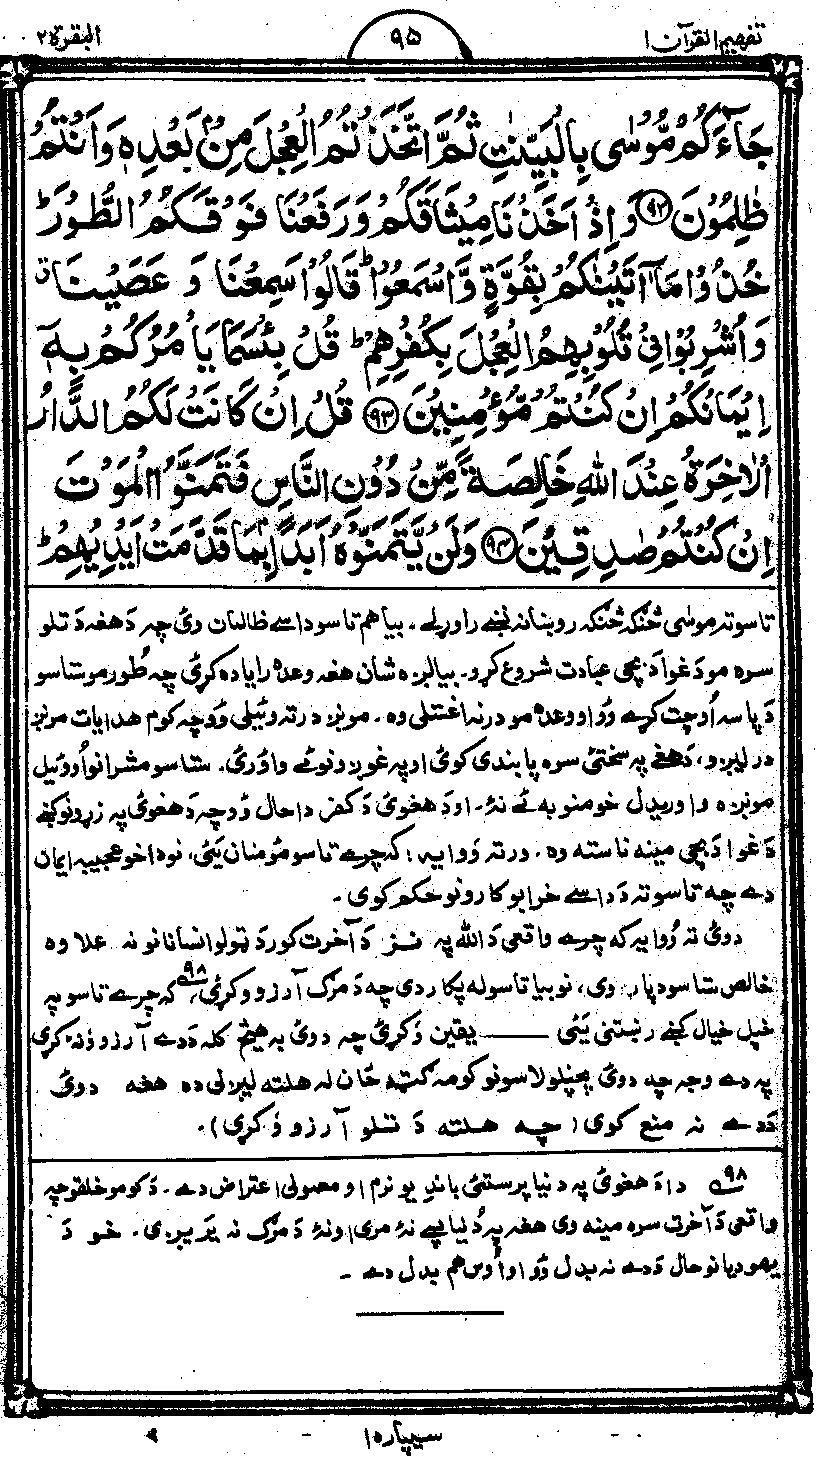 تفهیم القرآن ۱
۹۵
البقرة ۲
جَآءَكُمْ مُّوْسٰى بِالْبَيِّنٰتِ ثُمَّ اتَّخَذْتُمُ الْعِجْلَ مِنْۢ بَعْدِهٖ وَاَنْتُمْ
ظٰلِمُوْنَ ﴿۹۲﴾ وَاِذْ اَخَذْنَا مِيْثَاقَكُمْ وَرَفَعْنَا فَوْقَكُمُ الطُّوْرَ ؕ
خُذُوْا مَآ اٰتَيْنٰكُمْ بِقُوَّةٍ وَّاسْمَعُوْا ؕ قَالُوْا سَمِعْنَا وَ عَصَيْنَا ۗ
وَاُشْرِبُوْا فِىْ قُلُوْبِهِمُ الْعِجْلَ بِكُفْرِهِمْ ؕ قُلْ بِئْسَمَا يَاْمُرُكُمْ بِهٖٓ
اِيْمَانُكُمْ اِنْ كُنْتُمْ مُّؤْمِنِيْنَ ﴿۹۳﴾ قُلْ اِنْ كَانَتْ لَكُمُ الدَّارُ
الْاٰخِرَةُ عِنْدَ اللّٰهِ خَالِصَةً مِّنْ دُوْنِ النَّاسِ فَتَمَنَّوُا الْمَوْتَ
اِنْ كُنْتُمْ صٰدِقِيْنَ ﴿۹۴﴾ وَلَنْ يَّتَمَنَّوْهُ اَبَدًۢا بِمَا قَدَّمَتْ اَيْدِيْهِمْ ؕ
تاسو ته موسٰی څنګه څنګه روښانه نخښے راوړلے. بیا هم تاسو داسے ظالمان وئ چه دَ هغه دَ تلو
سره مو دَ غوا دَ بچی عبادت شروع کړو. بیا لږه شان هغه وعده را یاده کړئ چه طُور مو ستاسو
دَ پاسه اُوچت کړے وُو او وعده مو درنه اغستلی وه. مونږه درته وئیلی وُو چه کوم هدایات مونږه
درلیږو، دَ هغے په سختئ سره پابندی کوئ او په غوږونو ئے واوُرئ. ستاسو مشرانو اُووئیل
مونږه واوریدل خو منو به ئے نهٔ. او دَ هغوئ دَ کفر دا حال وُو چه دَ هغوئ په زړونو کښے
دَ غوا دَ بچی مینه ناسته وه. ورته وُوایه! که چرے تاسو مؤمنان یَئ، نو دا خو عجیبه ایمان
دے چه تاسو ته دَ داسے خرابو کارونو حکم کوی.
دوئ ته وُوایه که چرے واقعی دَ الله په نزد دَ آخرت کور دَ ټولو انسانانو نه علاوه
خالص ستاسو دپاره وی، نو بیا تاسو له پکار دی چه دَ مرګ آرزو وکړئ ۹۸، که چرے تاسو په
خپل خیال کښے رښتنی یَئ ـــــ یقین وُکړئ چه دوئ به هیڅ کله دَ دے آرزو وُنهٔ کړی
په دے وجه چه دوئ پخپلو لاسونو کومه ګټه ځان له هلته لیږلی ده هغه دوئ
دَ دے نه منع کوی (چه هلته دَ تللو آرزو وُکړی).
۹۸ دا دَ هغوئ په دنیا پرستئ باندِ یو نرم او معمولی اعتراض دے. دَ کومو خلقو چه
واقعی دَ آخرت سره مینه وی هغه په دُنیا پسے نهٔ مری او نهٔ دَ مرګ نه یَریږی. خو دَ
یهودیانو حال دَ دے نه بدل وُو او اُوس هم بدل دے .
سیپاره ۱
۹